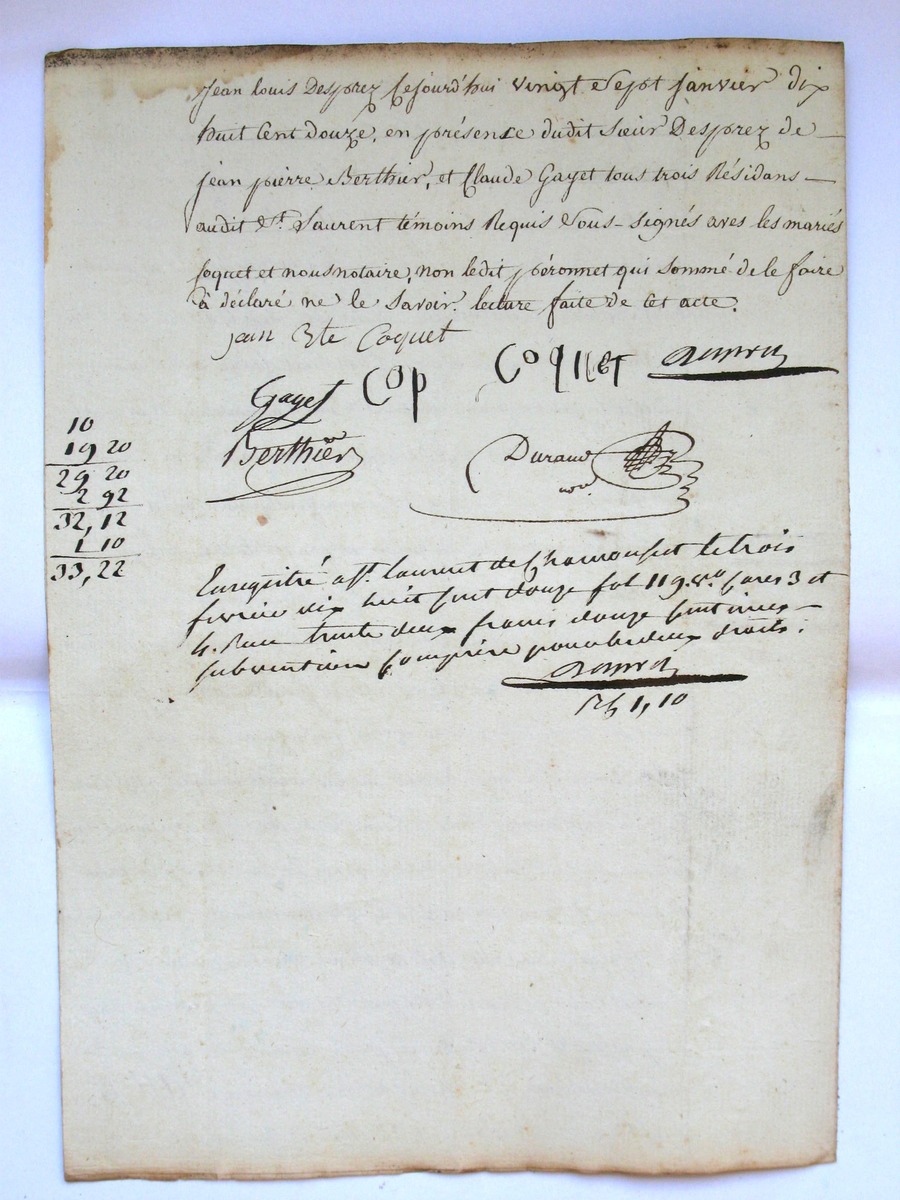 Jean Louis Desprez Cejourd'hui vingt Sept janvier dix
huit Cent douze, en présence dudit Sieur Desprez de
jean pierre Berthier, et Claude Gayet tous trois Résidans
audit St. Laurent témoins Requis Sous-signés aves les mariés
Coquet et nous notaire, non ledit péronnet qui sommé de le faire
à déclaré ne le Savoir. lecture faite de cet acte.
jean Bte Coquet
Gayet Cop Coquet
Berthier
Durand
10
19 20
29 20
2 92
32,12
1 10
33,22
Enregistré a St. laurent de Chamousset le trois
fevrier dix huit cent douze fol 119 v.o cases 3 et
4. Reçu trente deux francs douze centimes
subvention comprise pour les deux droits.
1,10